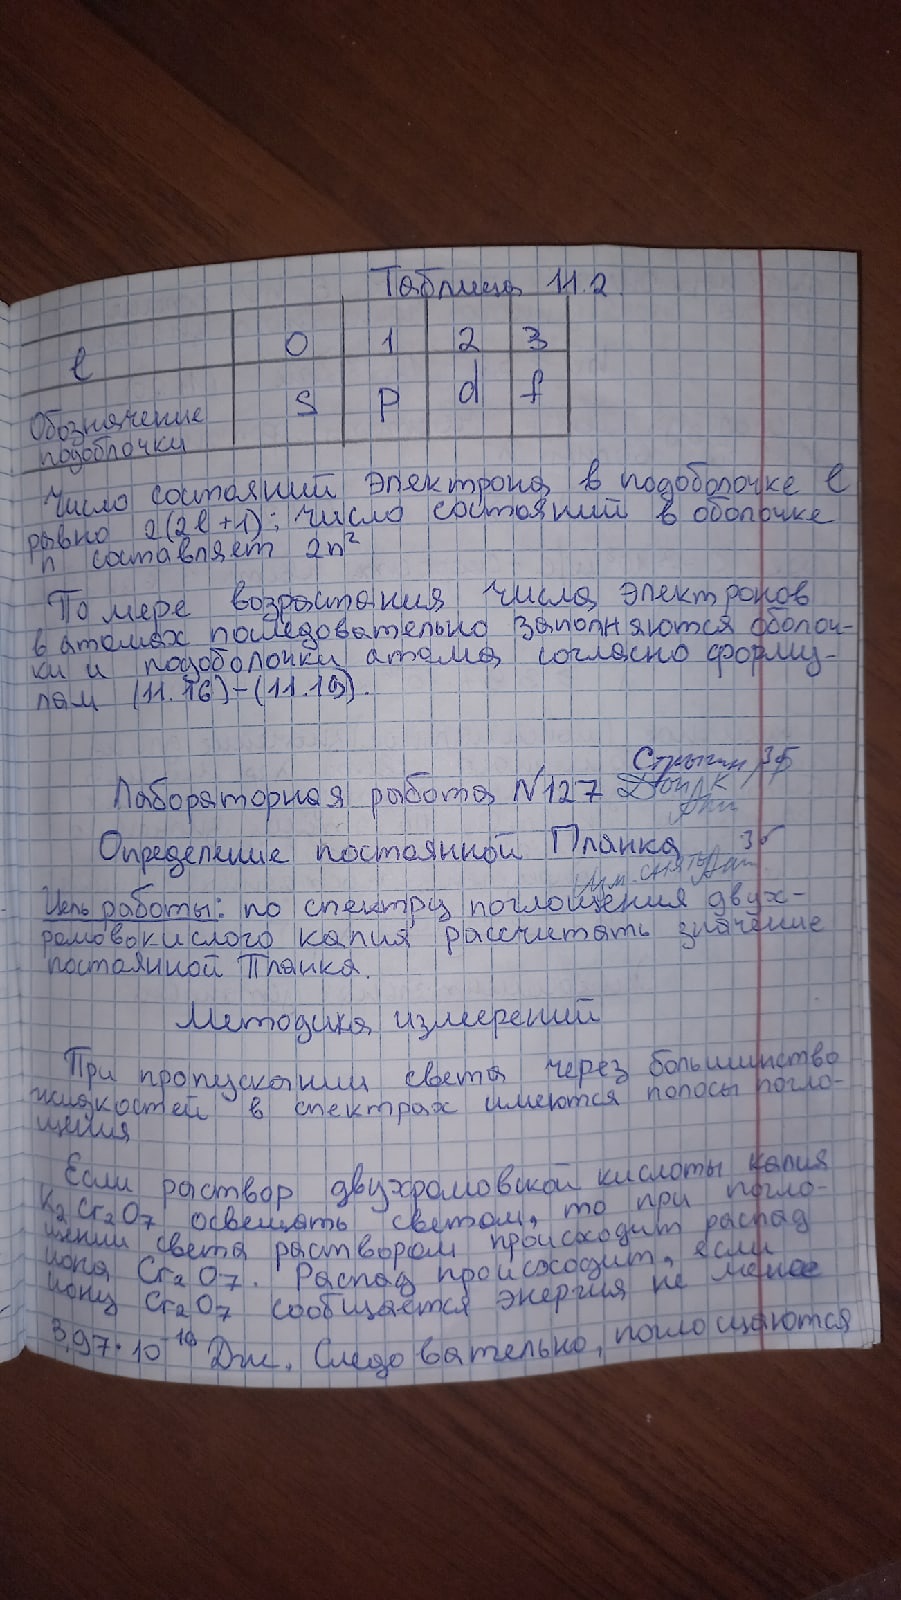 Таблица 11.2.
l 0 1 2 3
Обозначение s p d f
подоблочки
Число состояний электрона в подоболочке l
равно 2(2l+1); число состояний в оболочке
n составляет 2n²
По мере возрастания числа электронов
в атомах последовательно заполняются оболоч-
ки и подоболочки атома согласно форму-
лам (11.16)-(11.19).
Лабораторная работа №127
Определение постоянной Планка 3б
Цель работы: по спектру поглощения двух-
ромовокислого калия рассчитать значение
постоянной Планка.
Методика измерений
При пропускании света через большинство
жидкостей в спектрах имеются полосы погло-
щения
Если раствор двухромовской кислоты калия
K₂Cr₂O₇ освещать светом, то при погло-
щении света раствором происходит распад
иона Cr₂O₇. Распад происходит, если
иону Cr₂O₇ сообщается энергия не менее
3,97·10⁻¹⁹ Дж. Следовательно, поглощаются